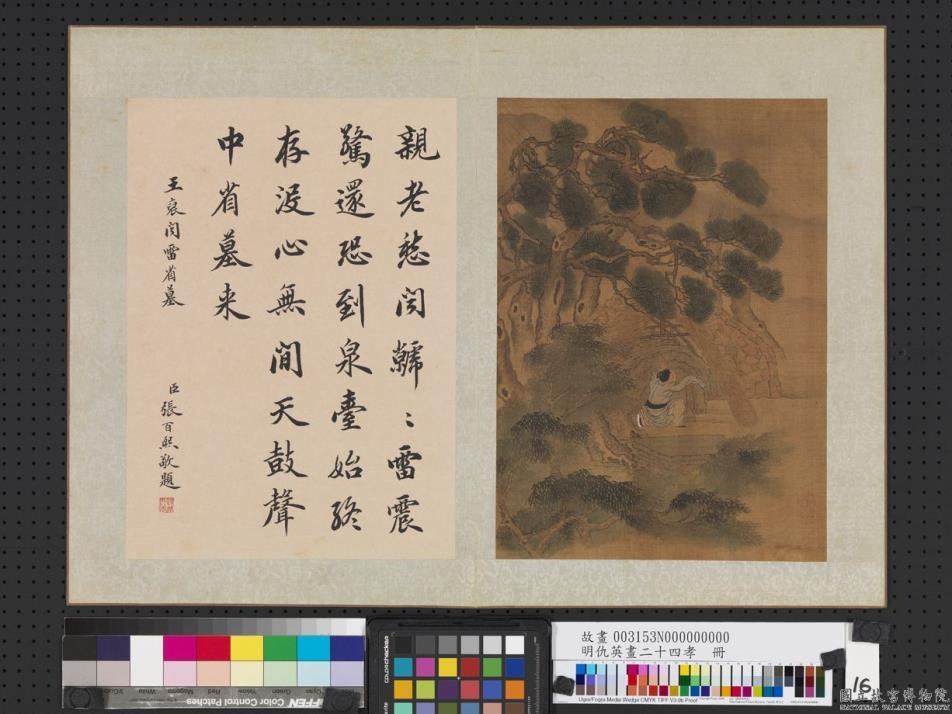 親老愁聞虩〻雷震
驚還恐到泉臺始終
存没心無間天鼓聲
中省墓来
王裒聞雷省墓
臣張百熙敬題
故畫 003153N000000000
明仇英畫二十四孝 冊
16
colorchecker
3/Color
White
Magenta
Red
Yellow
Green
Cyan
Blue
TIFFEN Color Control Patches
Ugra/Fogra Media Wedge CMYK TIFF V3.0b Proof
國立故宮博物院
NATIONAL PALACE MUSEUM